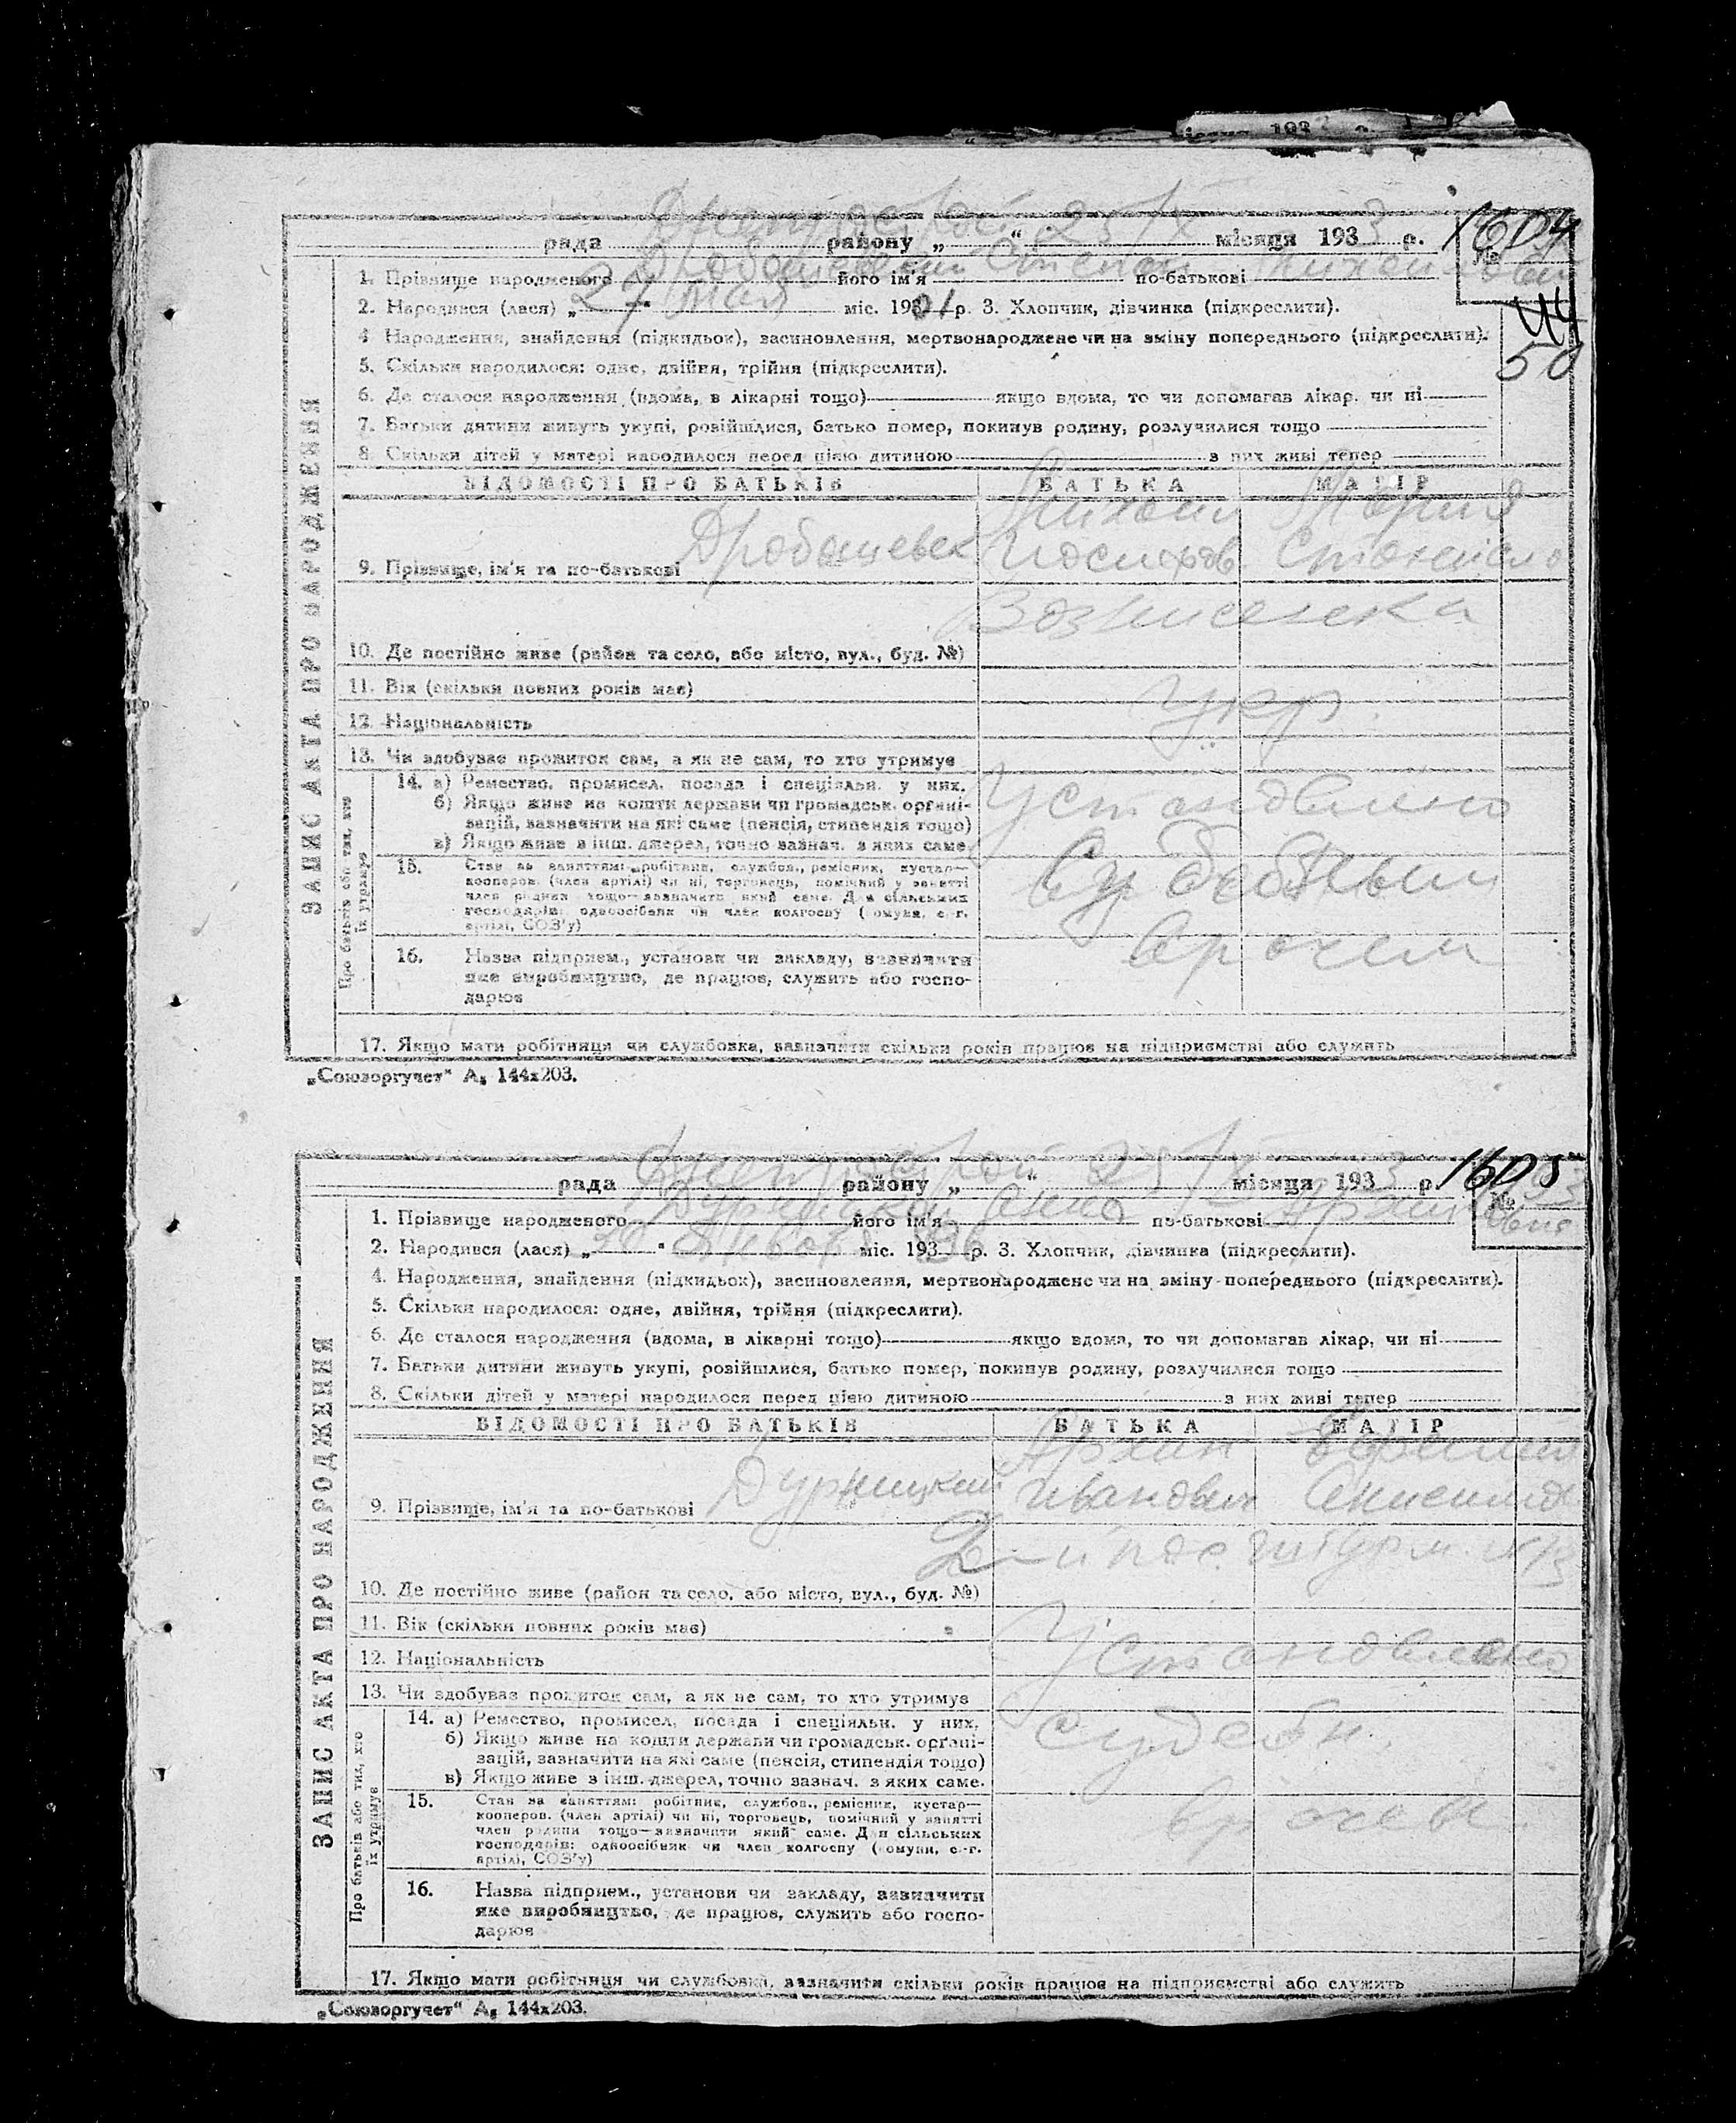 місяця 193 р.
1604
рада району „ 25 “ IX місяця 1933 р. №
1. Прізвище народженого його ім'я Степан по-батькові
2. Народився (лася) „27“ мая міс. 1901 р. 3. Хлопчик, дівчинка (підкреслити).
4 Народження, знайдення (підкидьок), засиновлення, мертвонароджене чи на зміну попереднього (підкреслити).
50
5. Скільки народилося: одне, двійня, трійня (підкреслити).
6. Де сталося народження (вдома, в лікарні тощо) якщо вдома, то чи допомагав лікар, чи ні
7. Батьки дитини живуть укупі, розійшлися, батько помер, покинув родину, розлучилися тощо
8. Скільки дітей у матері народилося перед цією дитиною з них живі тепер
ЗАПИС АКТА ПРО НАРОДЖЕННЯ
ВІДОМОСТІ ПРО БАТЬКІВ БАТЬКА МАТІР
Михаил Мария
9. Прізвище, ім'я та по-батькові
Вознесенка
10. Де постійно живе (район та село, або місто, вул., буд. №)
11. Вік (скільки повних років має)
12. Національність укр.
13. Чи здобуває прожиток сам, а як не сам, то хто утримує
Про батьків або тих, хто їх утримує
14. а) Ремество, промисел, посада і спеціяльн. у них.
б) Якщо живе на кошти держави чи громадськ. органі-
зацій, зазначити на які саме (пенсія, стипендія тощо)
в) Якщо живе з інш. джерел, точно зазнач. з яких саме.
Установлено
15. Стан за заняттям: робітник, службов., ремісник, кустар—
кооперов. (член артілі) чи ні, торговець, помічний у занятті
член родини тощо—зазначити який саме. Для сільських
господарів: одноосібник чи член колгоспу (комуни, с.-г.
артілі, СОЗ'у)
Судебным
16. Назва підприєм., установи чи закладу, зазначити
яке виробництво, де працює, служить або госпо-
дарює
врачем
17. Якщо мати робітниця чи службовка, зазначити скільки років працює на підприємстві або служить
„Союзоргучет“ А₅ 144х203.
1605
рада району „ 25 “ місяця 1933 р. №
1. Прізвище народженого його ім'я Анна по-батькові
2. Народився (лася) „ “ января міс. 193 р. 3. Хлопчик, дівчинка (підкреслити).
4. Народження, знайдення (підкидьок), засиновлення, мертвонароджене чи на зміну попереднього (підкреслити).
5. Скільки народилося: одне, двійня, трійня (підкреслити).
6. Де сталося народження (вдома, в лікарні тощо) якщо вдома, то чи допомагав лікар, чи ні
7. Батьки дитини живуть укупі, розійшлися, батько помер, покинув родину, розлучилися тощо
8. Скільки дітей у матері народилося перед цією дитиною з них живі тепер
ЗАПИС АКТА ПРО НАРОДЖЕННЯ
ВІДОМОСТІ ПРО БАТЬКІВ БАТЬКА МАТІР
9. Прізвище, ім'я та по-батькові Дурницкий Иванович
10. Де постійно живе (район та село, або місто, вул., буд. №)
11. Вік (скільки повних років має)
12. Національність Установлено
13. Чи здобуває прожиток сам, а як не сам, то хто утримує
Про батьків або тих, хто їх утримує
14. а) Ремество, промисел, посада і спеціяльн. у них.
б) Якщо живе на кошти держави чи громадськ. органі-
зацій, зазначити на які саме (пенсія, стипендія тощо)
в) Якщо живе з інш. джерел, точно зазнач. з яких саме.
судебн.
15. Стан за заняттям: робітник, службов., ремісник, кустар—
кооперов. (член артілі) чи ні, торговець, помічний у занятті
член родини тощо—зазначити який саме. Для сільських
господарів: одноосібник чи член колгоспу (комуни, с.-г.
артілі, СОЗ'у)
16. Назва підприєм., установи чи закладу, зазначити
яке виробництво, де працює, служить або госпо-
дарює
17. Якщо мати робітниця чи службовка, зазначити скільки років працює на підприємстві або служить
„Союзоргучет“ А₅ 144х203.